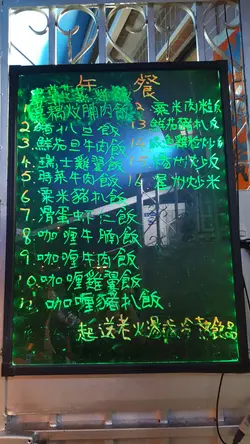 午 餐
1. 蓮藕炆腩肉飯
2 豬扒旦飯
3 鮮茄旦牛肉飯
4. 瑞士雞翼飯
5 時菜牛肉飯
6 粟米豬扒飯
7. 滑蛋蝦仁飯
8. 咖喱牛腩飯
9. 咖喱牛肉飯
10. 咖喱雞翼飯
11. 咖喱豬扒飯
2. 粟米肉粒飯
13 鮮茄豬扒飯
14
15 揚州炒飯
16. 星州炒米
起送老火湯或冷熱飲品